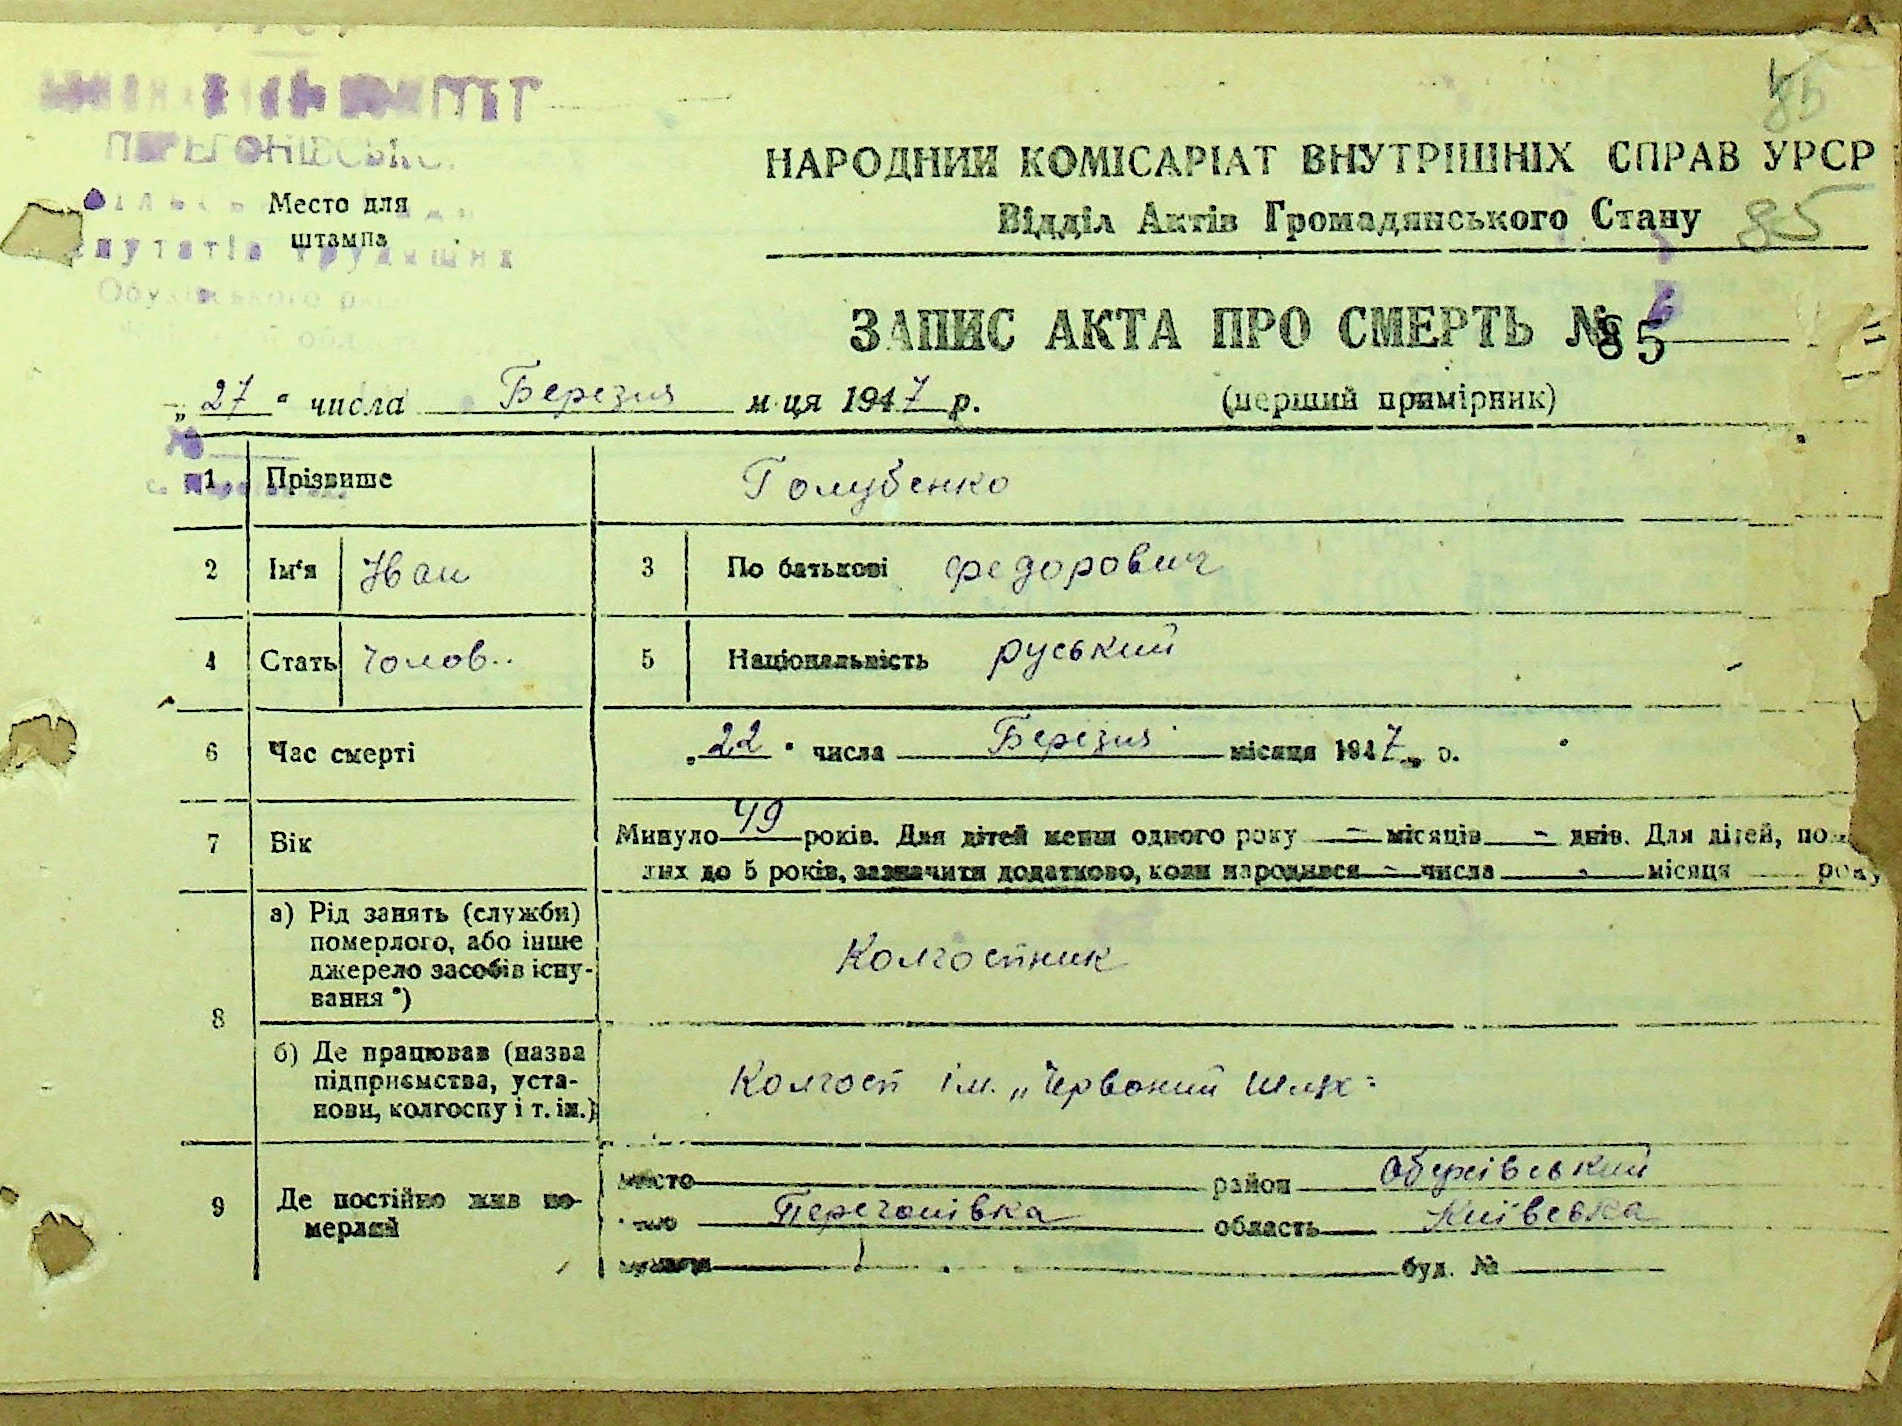 КОМІТЕТ
ПЕРЕГОНІВСЬКО
Место для
штампа
депутатів трудящих
Обухівського
85
НАРОДНИЙ КОМІСАРІАТ ВНУТРІШНІХ СПРАВ УРСР
Відділ Актів Громадянського Стану 85
ЗАПИС АКТА ПРО СМЕРТЬ № 85
„27" числа Березня м-ця 1947 р. (перший примірник)
1 Прізвище Голубенко
2 Ім'я Іван 3 По батькові Федорович
4 Стать Чолов.. 5 Національність руський
6 Час смерті „22" числа Березня місяця 1947 р.
7 Вік Минуло 49 років. Для дітей менш одного року - місяців - днів. Для дітей,
лих до 5 років, зазначити додатково, коли народився - числа - місяця року
8 а) Рід занять (служби)
померлого, або інше
джерело засобів існу-
вання *)
Колгоспник
б) Де працював (назва
підприємства, уста-
нови, колгоспу і т. ін.)
Колгосп ім. „Червоний Шлях"
9 Де постійно жив по-
мерлий
місто район Обухівський
Перегонівка область Київська
вулиця буд. №